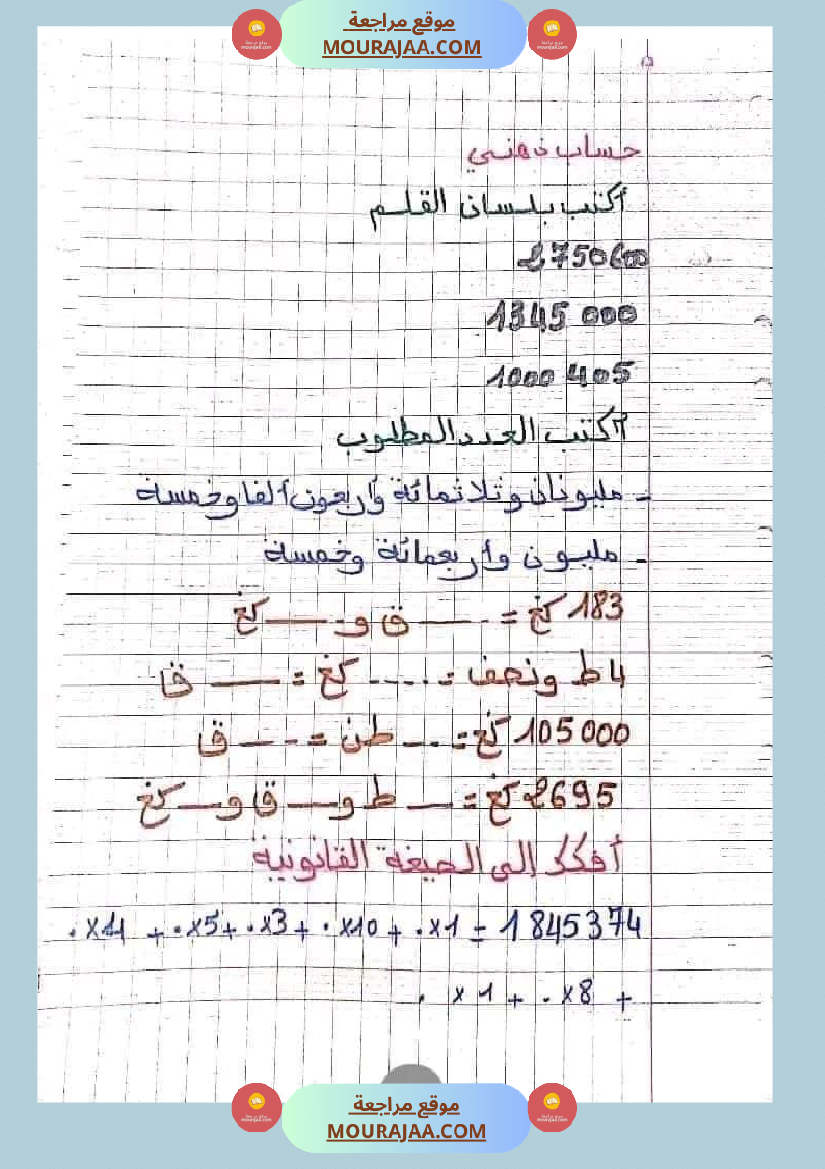 موقع مراجعة
MOURAJAA.COM
حساب ذهني
أكتب بلسان القلم
2750600
1345 000
1000 405
أكتب العدد المطلوب
- مليونان وثلاثمائة وأربعون ألفا وخمسة
- مليون وأربعمائة وخمسة
183 كغ = ---- ق و ---- كغ
4 ط ونصف = .... كغ = ---- ق
105 000 كغ = ... طن = --- ق
2695 كغ = --- ط و --- ق و --- كغ
أفكك إلى الصيغة القانونية
1 845 374 = .x1 + .x10 + .x3 + .x5 + .x4
+ .x8 + .x1
موقع مراجعة
MOURAJAA.COM